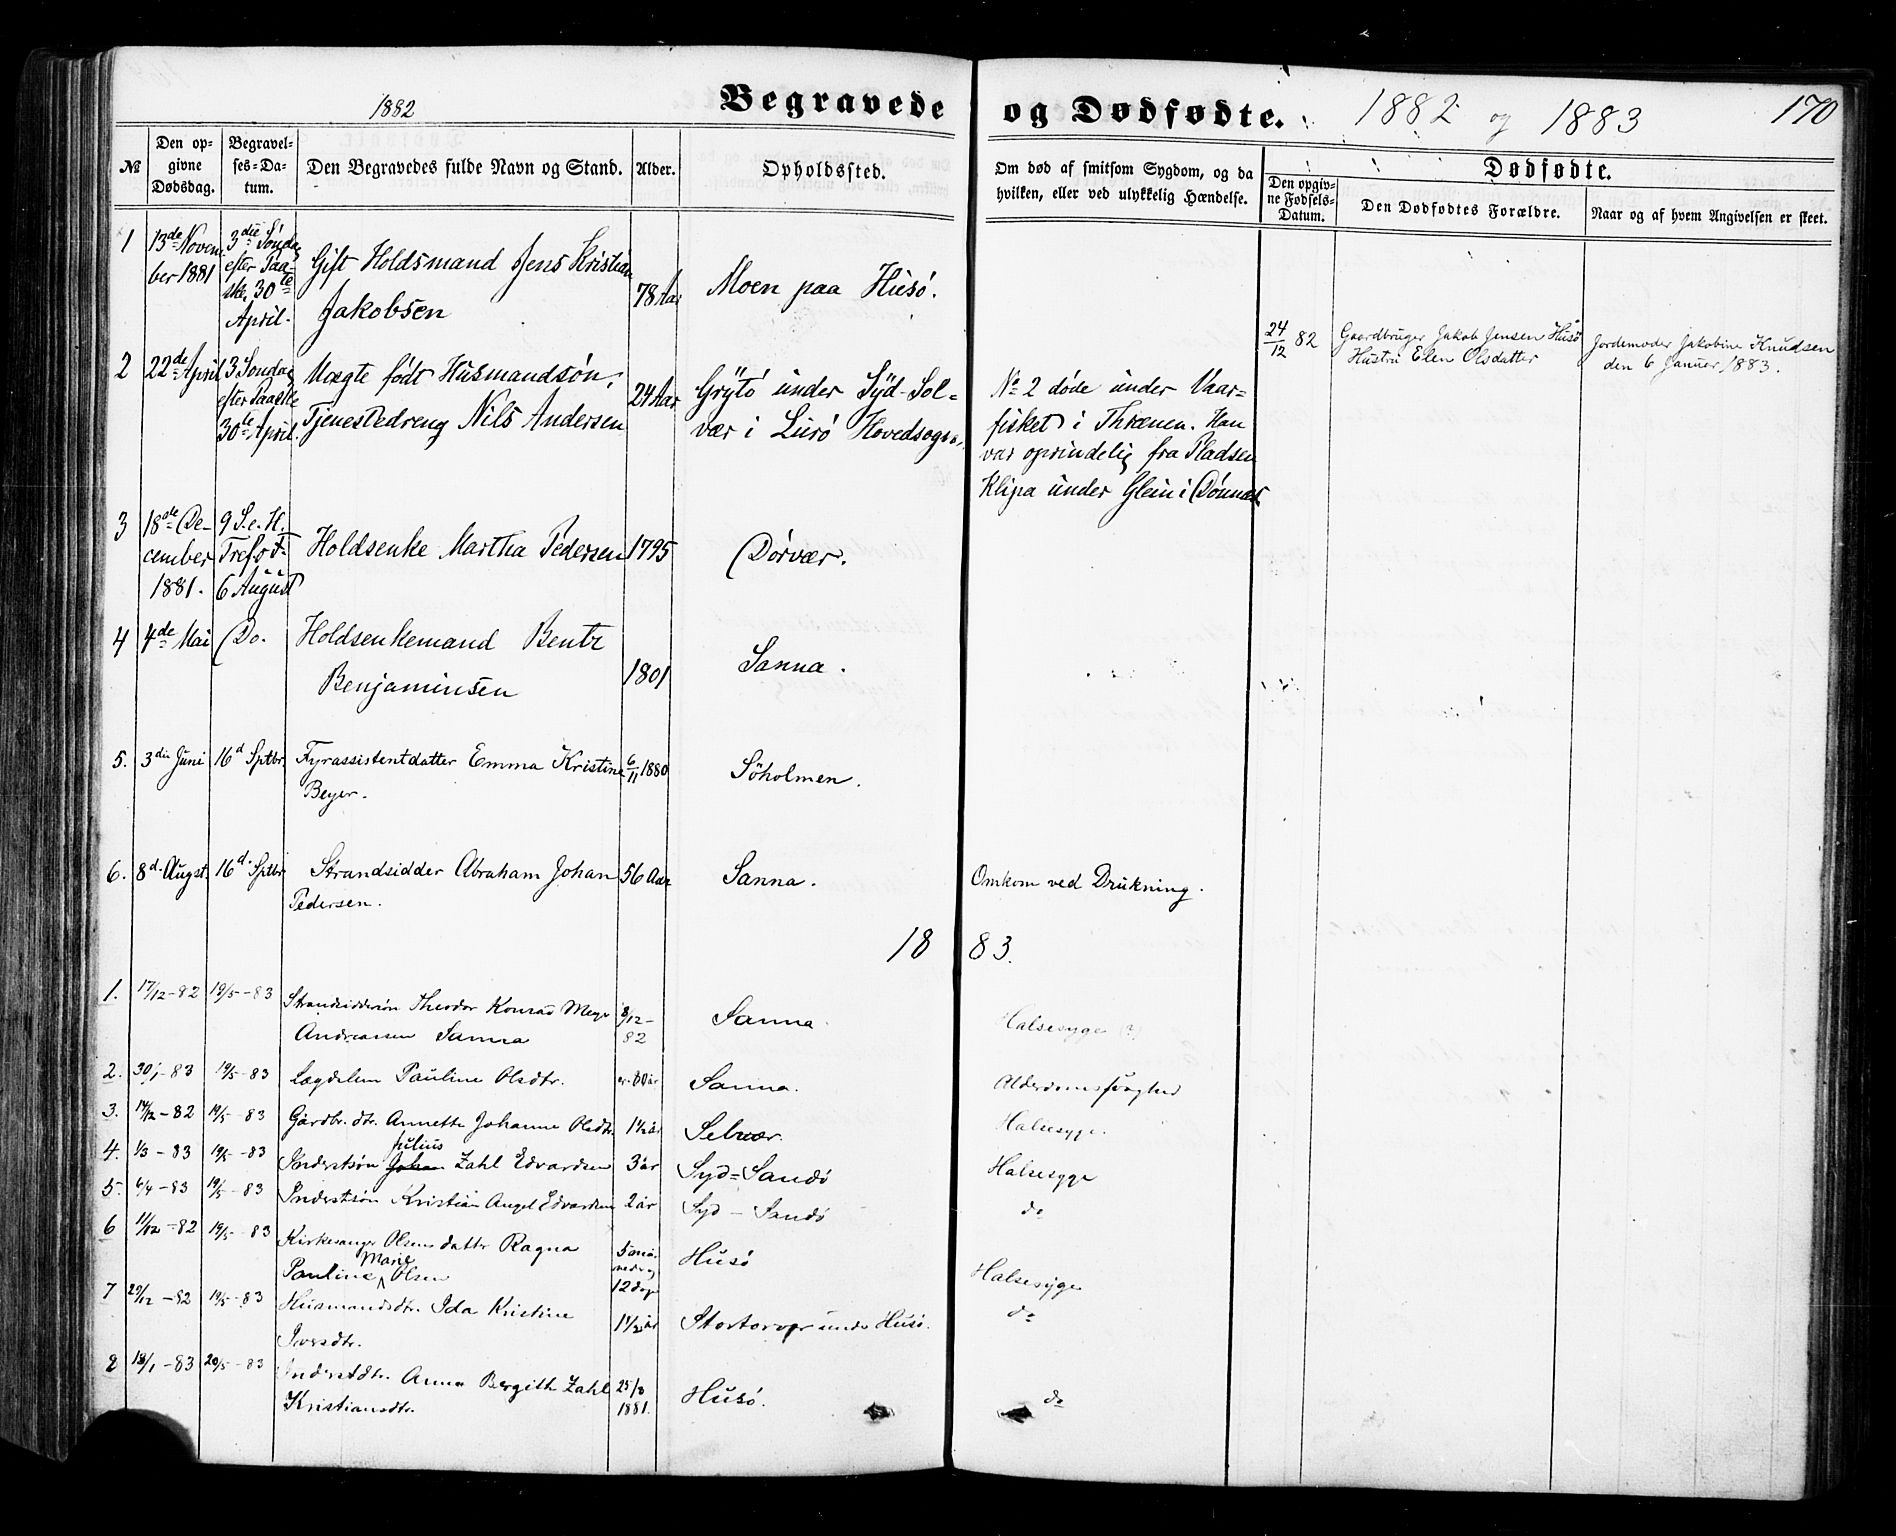 1882
Begravede og Dødfødte. 1882 og 1883 170
№
Den opgivne Dødsdag.
Begravelses-Datum.
Den Begravedes fulde Navn og Stand.
Alder.
Opholdssted.
Om død af smitsom Sygdom, og da
hvilken, eller ved ulykkelig Hændelse.
Dødfødte.
Den opgivne Fødsels-Datum.
Den Dødfødtes Forældre.
Naar og af hvem Angivelsen er skeet.
1 13de Novem 3die Söndag Gift Holdsmand Jens Kristian 78 Aar Moen paa Husö.
ber 1881 efter Paaske, 30te April. Jakobsen
24/12 82 Gaardbruger Jakob Jensen Husö Jordemoder Jakobine Knudsen
Hustru Elen Olsdatter den 6 Januar 1883.
2 22de April 3 Sondag Uægte födt Husmandsön, 24 Aar Grÿtö under Sÿd-Sol- № 2 döde under Vaar-
efter Paaske Tjenestedreng Nils Andersen vær i Lurö Hovedsogn. fisket i Thrænen. Han
30te April. var oprindelig fra Pladsen
Klipa under Glein i Dönnæs
3 18de De- 9 S. e. H. Holdsenke Martha Pedersen 1795 Dörvær.
cember Trefot.
1881. 6 August
4 4de Mai Do. Holdsenkemand Bentz 1801 Sanna.
Benjaminsen
5. 3die Juni 16d Sptbr Fyrassistentdatter Emma Kristine 6/11 1880 Söholmen.
Beyer.
6. 8d. Augst. 16d. Sptbr Strandsidder Abraham Johan 56 Aar Sanna. Omkom ved Drukning.
Pedersen.
1883.
1. 17/12-82 19/5-83 Strandsiddersön Theodor Konrad Meyer 8/12-82 Sanna. Halsesyge (?)
Andreassen Sanna
2. 30/1-83 19/5-83 Lægdslem Pauline Olsdtr. 80 år Sanna. Alderdomssvaghed
3. 14/12-82 19/5-83 Gårdbr. dtr. Annette Johanne Olsdtr. 1½ år Selvær. Halsesyge.
4. 1/3-83 19/5-83 Inderstsön Johan Julius Zahl Edvardsen 3 år Syd-Sandö Halsesyge
5. 6/4-83 19/5-83 Inderstsön Kristian Angel Edvardsen 2 år Syd-Sandö do
6 11/12-82 19/5-83 Kirkesanger Olsens datter Ragna 5 måneder og Husö Halsesyge
Pauline Marie Olsen 12 dage
7 29/12-82 19/5-83 Husmandsdtr. Ida Kristine 1½ år Stortorvær under Husö. do
Iversdtr.
8 18/1-83 20/5-83 Inderstdtr. Anna Bergitte Zahl 25/8 1881. Husö. do
Kristiansdtr.